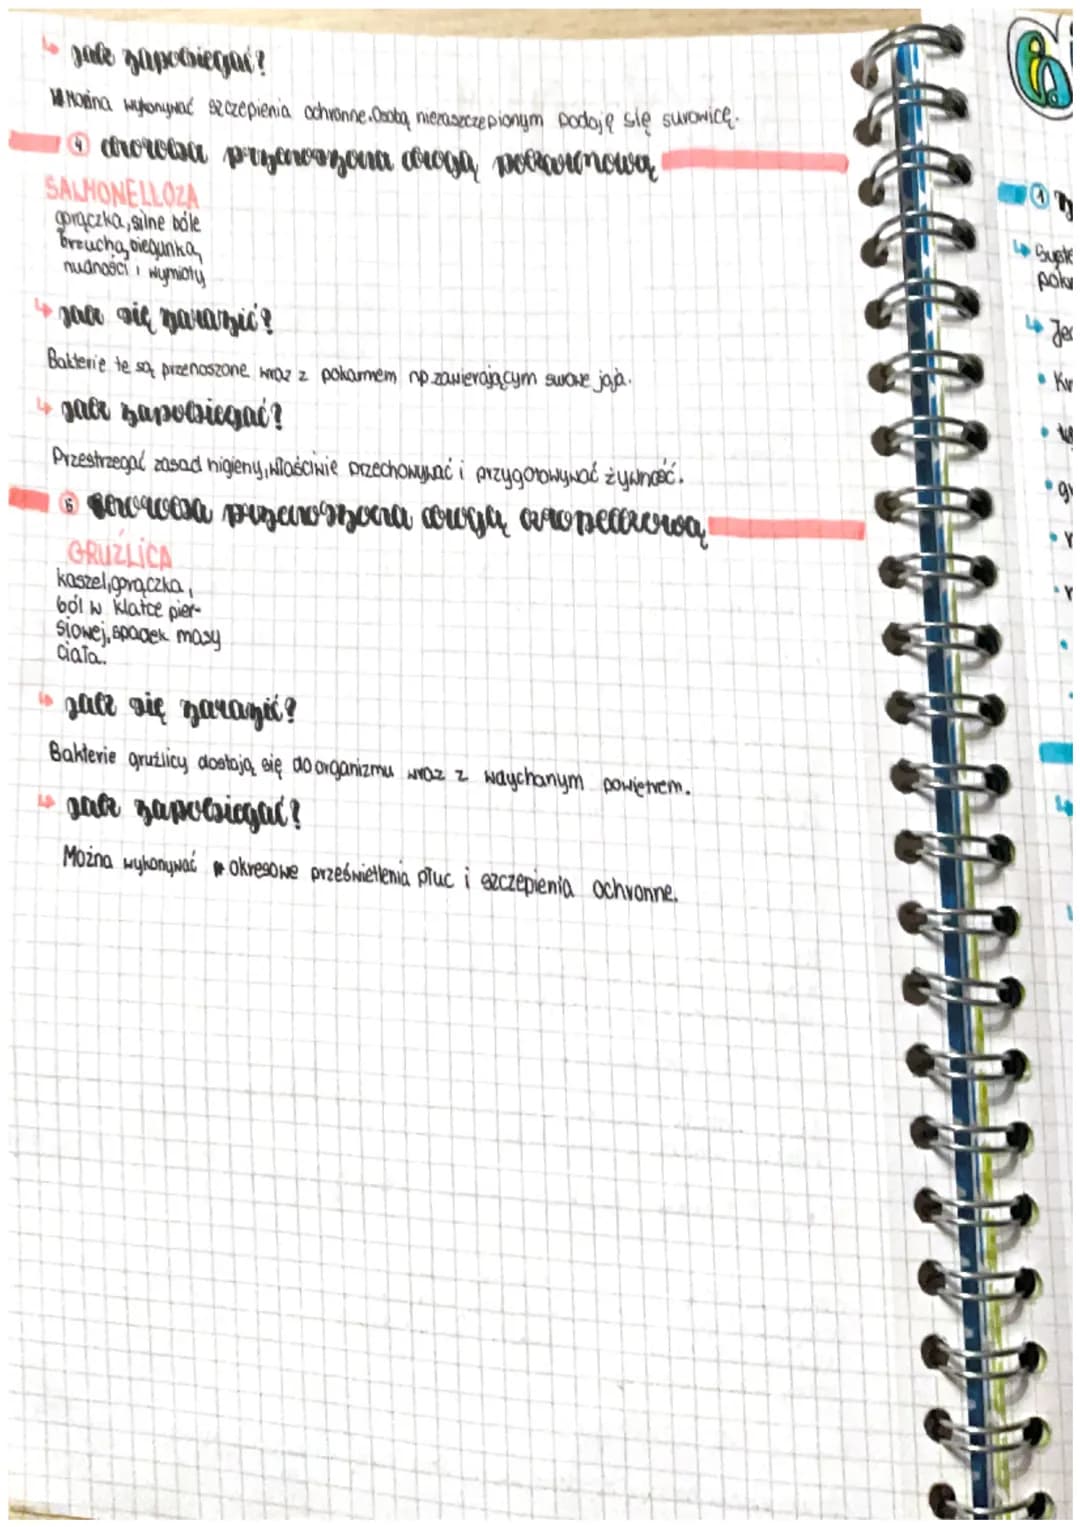 ↳ jak zapobiegać?
Można wykonywać szczepienia ochronne. Osobą nieraszczepionym podaję się surowicę.
④ choroba przenoszona drogą pokarmową
SALMONELLOZA
gorączka, silne bóle
brzucha, biegunka,
nudności i wymioty
↳ jak się zarazić?
Bakterie te są przenoszone wraz z pokarmem np. zawierającym surowe jaja.
↳ jak zapobiegać?
Przestrzegać zasad higieny, właściwie przechowywać i przygotowywać żywność.
⑤ choroba przenoszona drogą kropelkową
GRUŹLICA
kaszel, gorączka,
ból w klatce pier-
siowej, spadek masy
ciała.
↳ jak się zarazić?
Bakterie gruźlicy dostają się do organizmu wraz z wdychanym powietrzem.
↳ jak zapobiegać?
Można wykonywać okresowe prześwietlenia płuc i szczepienia ochronne.
①
↳
↳ Je